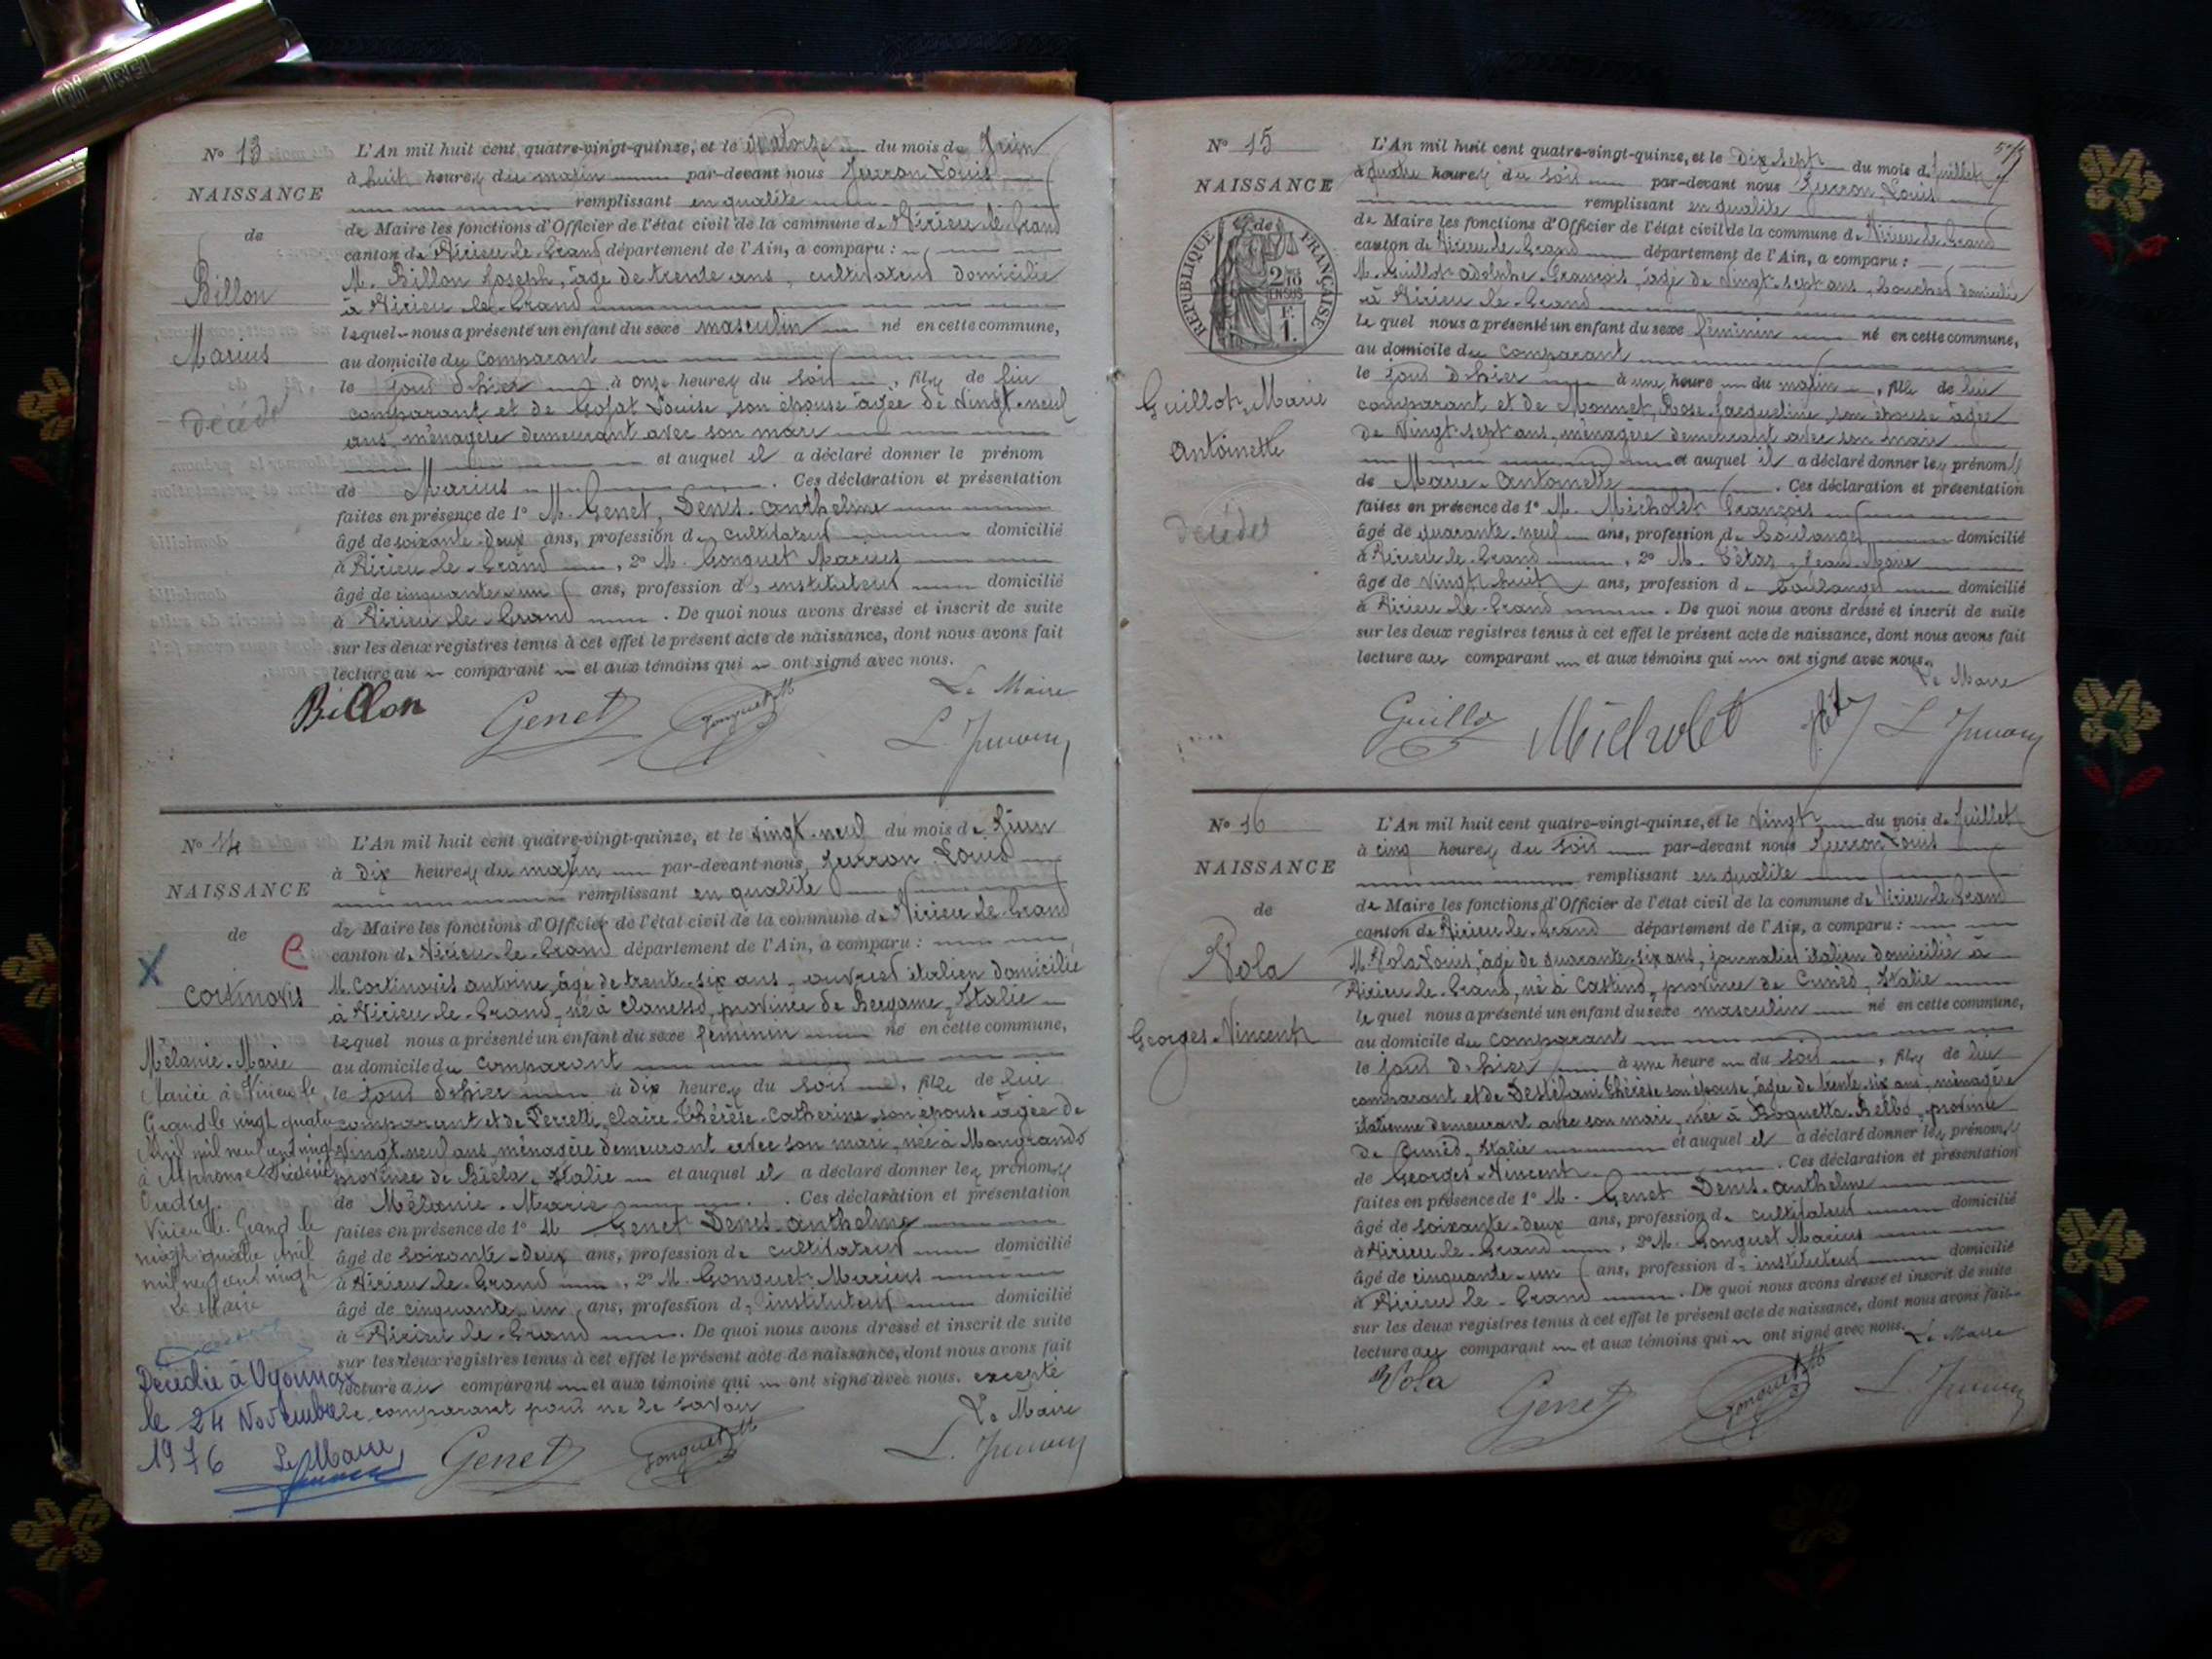 N° 13
NAISSANCE
de
Billon
Marius
Décédé
L'An mil huit cent quatre-vingt-quinze, et le quatorze du mois de Juin
à huit heures du matin par-devant nous Juvron Louis
remplissant en qualité
de Maire les fonctions d'Officier de l'état civil de la commune de Virieu-le-Grand
canton de Virieu-le-Grand département de l'Ain, a comparu :
M. Billon Joseph, âgé de trente ans, cultivateur domicilié
à Virieu-le-Grand
lequel nous a présenté un enfant du sexe masculin né en cette commune,
au domicile du comparant
le jour d'hier à onze heures du soir, fils de lui
comparant et de Gojat Louise, son épouse âgée de vingt-neuf
ans, ménagère demeurant avec son mari
et auquel il a déclaré donner le prénom
de Marius. Ces déclaration et présentation
faites en présence de 1° M. Genet, Denis-Anthelme
âgé de soixante-deux ans, profession de cultivateur domicilié
à Virieu-le-Grand, 2° M. Gonguet Marius
âgé de cinquante-un ans, profession d'instituteur domicilié
à Virieu-le-Grand. De quoi nous avons dressé et inscrit de suite
sur les deux registres tenus à cet effet le présent acte de naissance, dont nous avons fait
lecture au comparant et aux témoins qui ont signé avec nous.
Le Maire
Billon Genet Gonguet M
N° 14
NAISSANCE
de
Cortinovis
Mélanie-Marie
Mariée à Virieu-le-
Grand le vingt quatre
Avril mil neuf cent vingt
à Alphonse Frédéric
Virieu-le-Grand le
vingt quatre Avril
mil neuf cent vingt
Le Maire
Décédée à Oyonnax
le 24 Novembre
1976 Le Maire
L'An mil huit cent quatre-vingt-quinze, et le vingt-neuf du mois de Juin
à dix heures du matin par-devant nous Juvron Louis
remplissant en qualité
de Maire les fonctions d'Officier de l'état civil de la commune de Virieu-le-Grand
canton de Virieu-le-Grand département de l'Ain, a comparu :
M. Cortinovis Antoine, âgé de trente-six ans, ouvrier italien domicilié
à Virieu-le-Grand, né à Clanesso, province de Bergame, Italie
lequel nous a présenté un enfant du sexe féminin né en cette commune,
au domicile du comparant
le jour d'hier à dix heures du soir, fille de lui
comparant et de Ferretti, Claire-Thérèse-Catherine, son épouse âgée de
vingt-neuf ans, ménagère demeurant avec son mari, née à Mongrando
province de Biéla, Italie et auquel il a déclaré donner les prénoms
de Mélanie-Marie. Ces déclaration et présentation
faites en présence de 1° M Genet Denis-Anthelme
âgé de soixante-deux ans, profession de cultivateur domicilié
à Virieu-le-Grand, 2° M. Gonguet Marius
âgé de cinquante-un ans, profession d'instituteur domicilié
à Virieu-le-Grand. De quoi nous avons dressé et inscrit de suite
sur les deux registres tenus à cet effet le présent acte de naissance, dont nous avons fait
lecture au comparant et aux témoins qui ont signé avec nous. excepté
le comparant pour ne le savoir
Le Maire
Genet Gonguet M
N° 15
NAISSANCE
de
RÉPUBLIQUE FRANÇAISE
2/10 EN SUS
F. 1.
Guillot, Marie
Antoinette
Décédée
L'An mil huit cent quatre-vingt-quinze, et le dix-sept du mois de Juillet
à quatre heures du soir par-devant nous Juvron, Louis
remplissant en qualité
de Maire les fonctions d'Officier de l'état civil de la commune de Virieu-le-Grand
canton de Virieu-le-Grand département de l'Ain, a comparu :
M. Guillot Adolphe-François, âgé de vingt-sept ans, boucher domicilié
à Virieu-le-Grand
le quel nous a présenté un enfant du sexe féminin né en cette commune,
au domicile du comparant
le jour d'hier à une heure du matin, fille de lui
comparant et de Monnet, Rose-Jacqueline, son épouse âgée
de vingt-sept ans, ménagère demeurant avec son mari
et auquel il a déclaré donner les prénoms
de Marie-Antoinette. Ces déclaration et présentation
faites en présence de 1° M. Micholet François
âgé de quarante-neuf ans, profession de boulanger domicilié
à Virieu-le-Grand, 2° M. Tétaz, Jean-Marie
âgé de vingt-huit ans, profession de boulanger domicilié
à Virieu-le-Grand. De quoi nous avons dressé et inscrit de suite
sur les deux registres tenus à cet effet le présent acte de naissance, dont nous avons fait
lecture au comparant et aux témoins qui ont signé avec nous.
Le Maire
Guillot Micholet
N° 16
NAISSANCE
de
Vola
Georges-Vincent
L'An mil huit cent quatre-vingt-quinze, et le vingt du mois de Juillet
à cinq heures du soir par-devant nous Juvron Louis
remplissant en qualité
de Maire les fonctions d'Officier de l'état civil de la commune de Virieu-le-Grand
canton de Virieu-le-Grand département de l'Ain, a comparu :
M. Vola Louis, âgé de quarante-six ans, journalier italien domicilié à
Virieu-le-Grand, né à Castino, province de Cunéo, Italie
le quel nous a présenté un enfant du sexe masculin né en cette commune,
au domicile du comparant
le jour d'hier à une heure du soir, fils de lui
comparant et de Destéfani Thérèse son épouse, âgée de trente-six ans, ménagère
italienne demeurant avec son mari, née à Boquetta-Belbo, province
de Cunéo, Italie et auquel il a déclaré donner les prénoms
de Georges-Vincent. Ces déclaration et présentation
faites en présence de 1° M. Genet Denis-Anthelme
âgé de soixante-deux ans, profession de cultivateur domicilié
à Virieu-le-Grand, 2° M. Gonguet Marius
âgé de cinquante-un ans, profession d'instituteur domicilié
à Virieu-le-Grand. De quoi nous avons dressé et inscrit de suite
sur les deux registres tenus à cet effet le présent acte de naissance, dont nous avons fait
lecture au comparant et aux témoins qui ont signé avec nous. Le Maire
Vola Genet Gonguet M